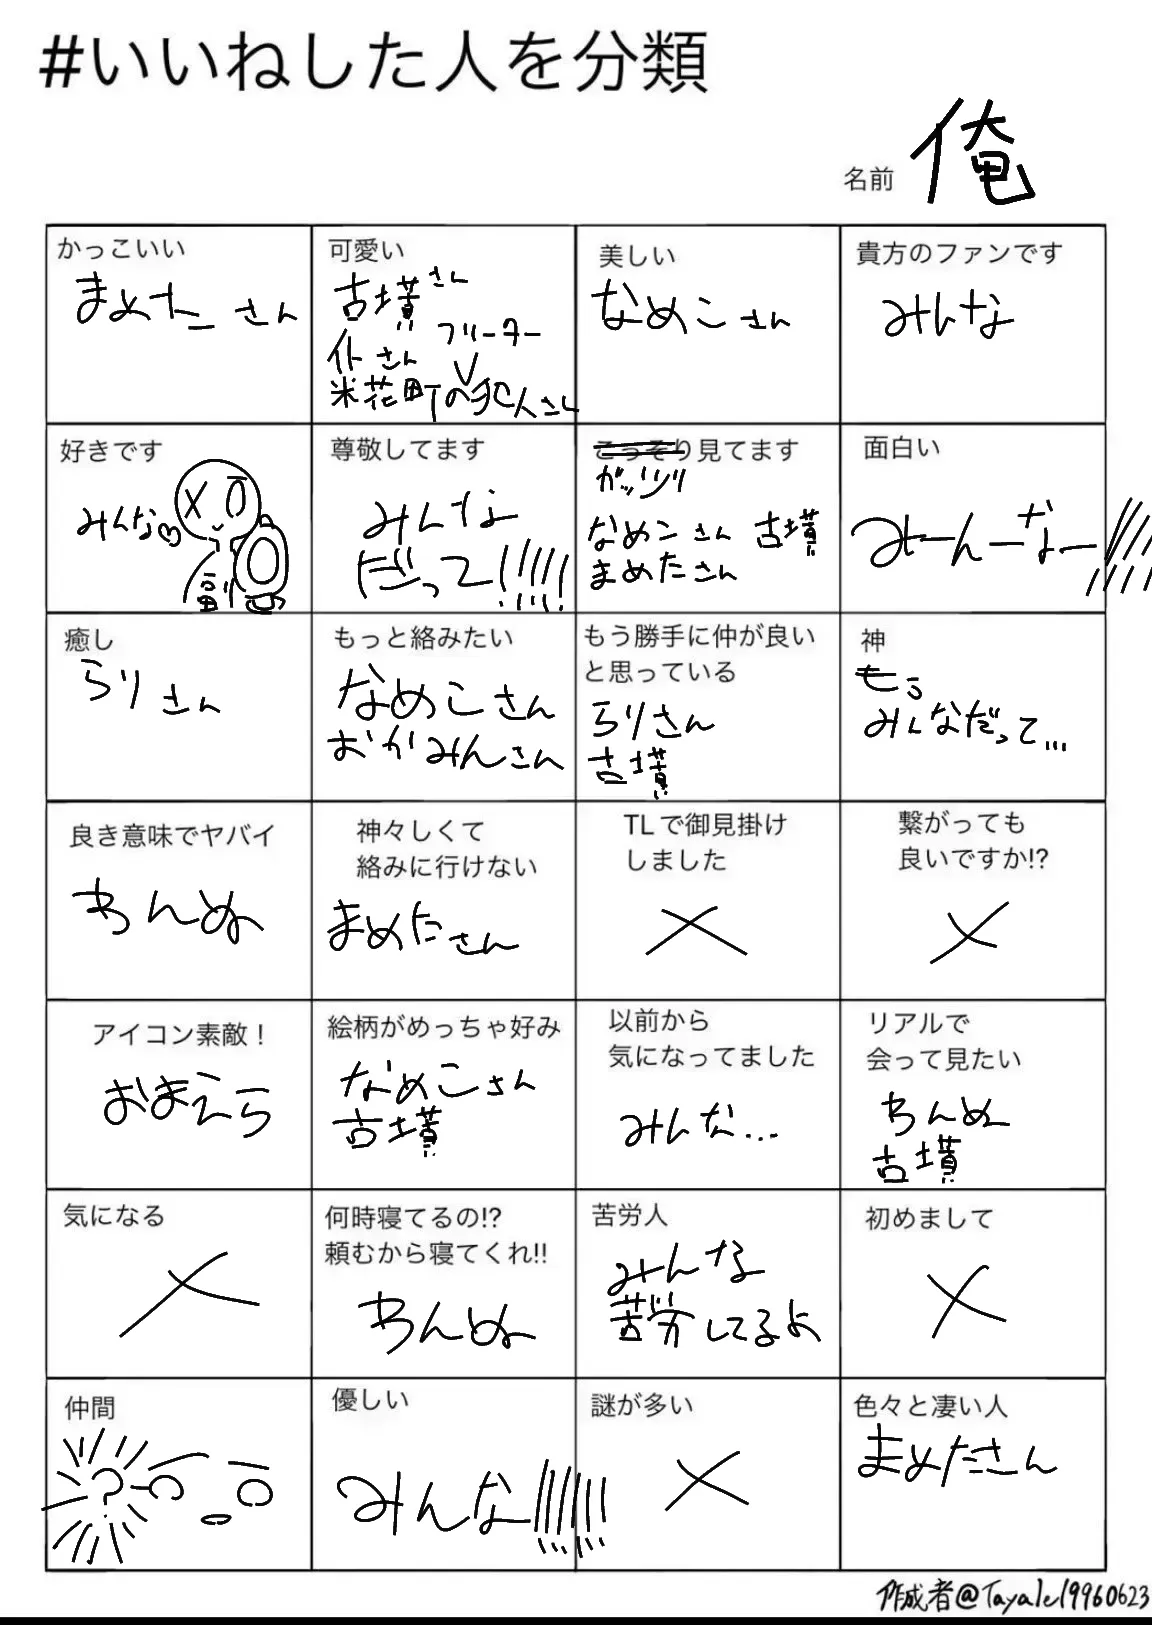 #いいねした人を分類
名前 俺
かっこいい
まめたさん
可愛い
古墳さん
仆さん
フリーター
米花町の犯人さん
美しい
なめこさん
貴方のファンです
みんな
好きです
みんな♡
副
尊敬してます
みんな
だって!!!!!
こっそり見てます
ガッツリ
なめこさん 古墳
まめたさん
面白い
みーんーなー!!!!
癒し
らりさん
もっと絡みたい
なめこさん
おかみんさん
もう勝手に仲が良い
と思っている
らりさん
古墳
神
もう
みんなだって…
良き意味でヤバイ
ちんぬ
神々しくて
絡みに行けない
まめたさん
TLで御見掛け
しました
×
繋がっても
良いですか!?
×
アイコン素敵!
おまえら
絵柄がめっちゃ好み
なめこさん
古墳
以前から
気になってました
みんな…
リアルで
会って見たい
ちんぬ
古墳
気になる
×
何時寝てるの!?
頼むから寝てくれ!!
ちんぬ
苦労人
みんな
苦労してるよ
初めまして
×
仲間
?
優しい
みんな!!!!!!
謎が多い
×
色々と凄い人
まめたさん
作成者@Tayale19960623